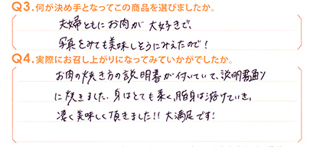 Q3.何が決め手となってこの商品を選びましたか。
夫婦ともにお肉が大好きで、
写真をみても美味しそうにみえたので!
Q4.実際にお召し上がりになってみていかがでしたか。
お肉の焼き方の説明書が付いていて、説明書通り
に焼きました。身はとても柔く、脂身は溶けていき。
凄く美味しく頂きました!!大満足です!